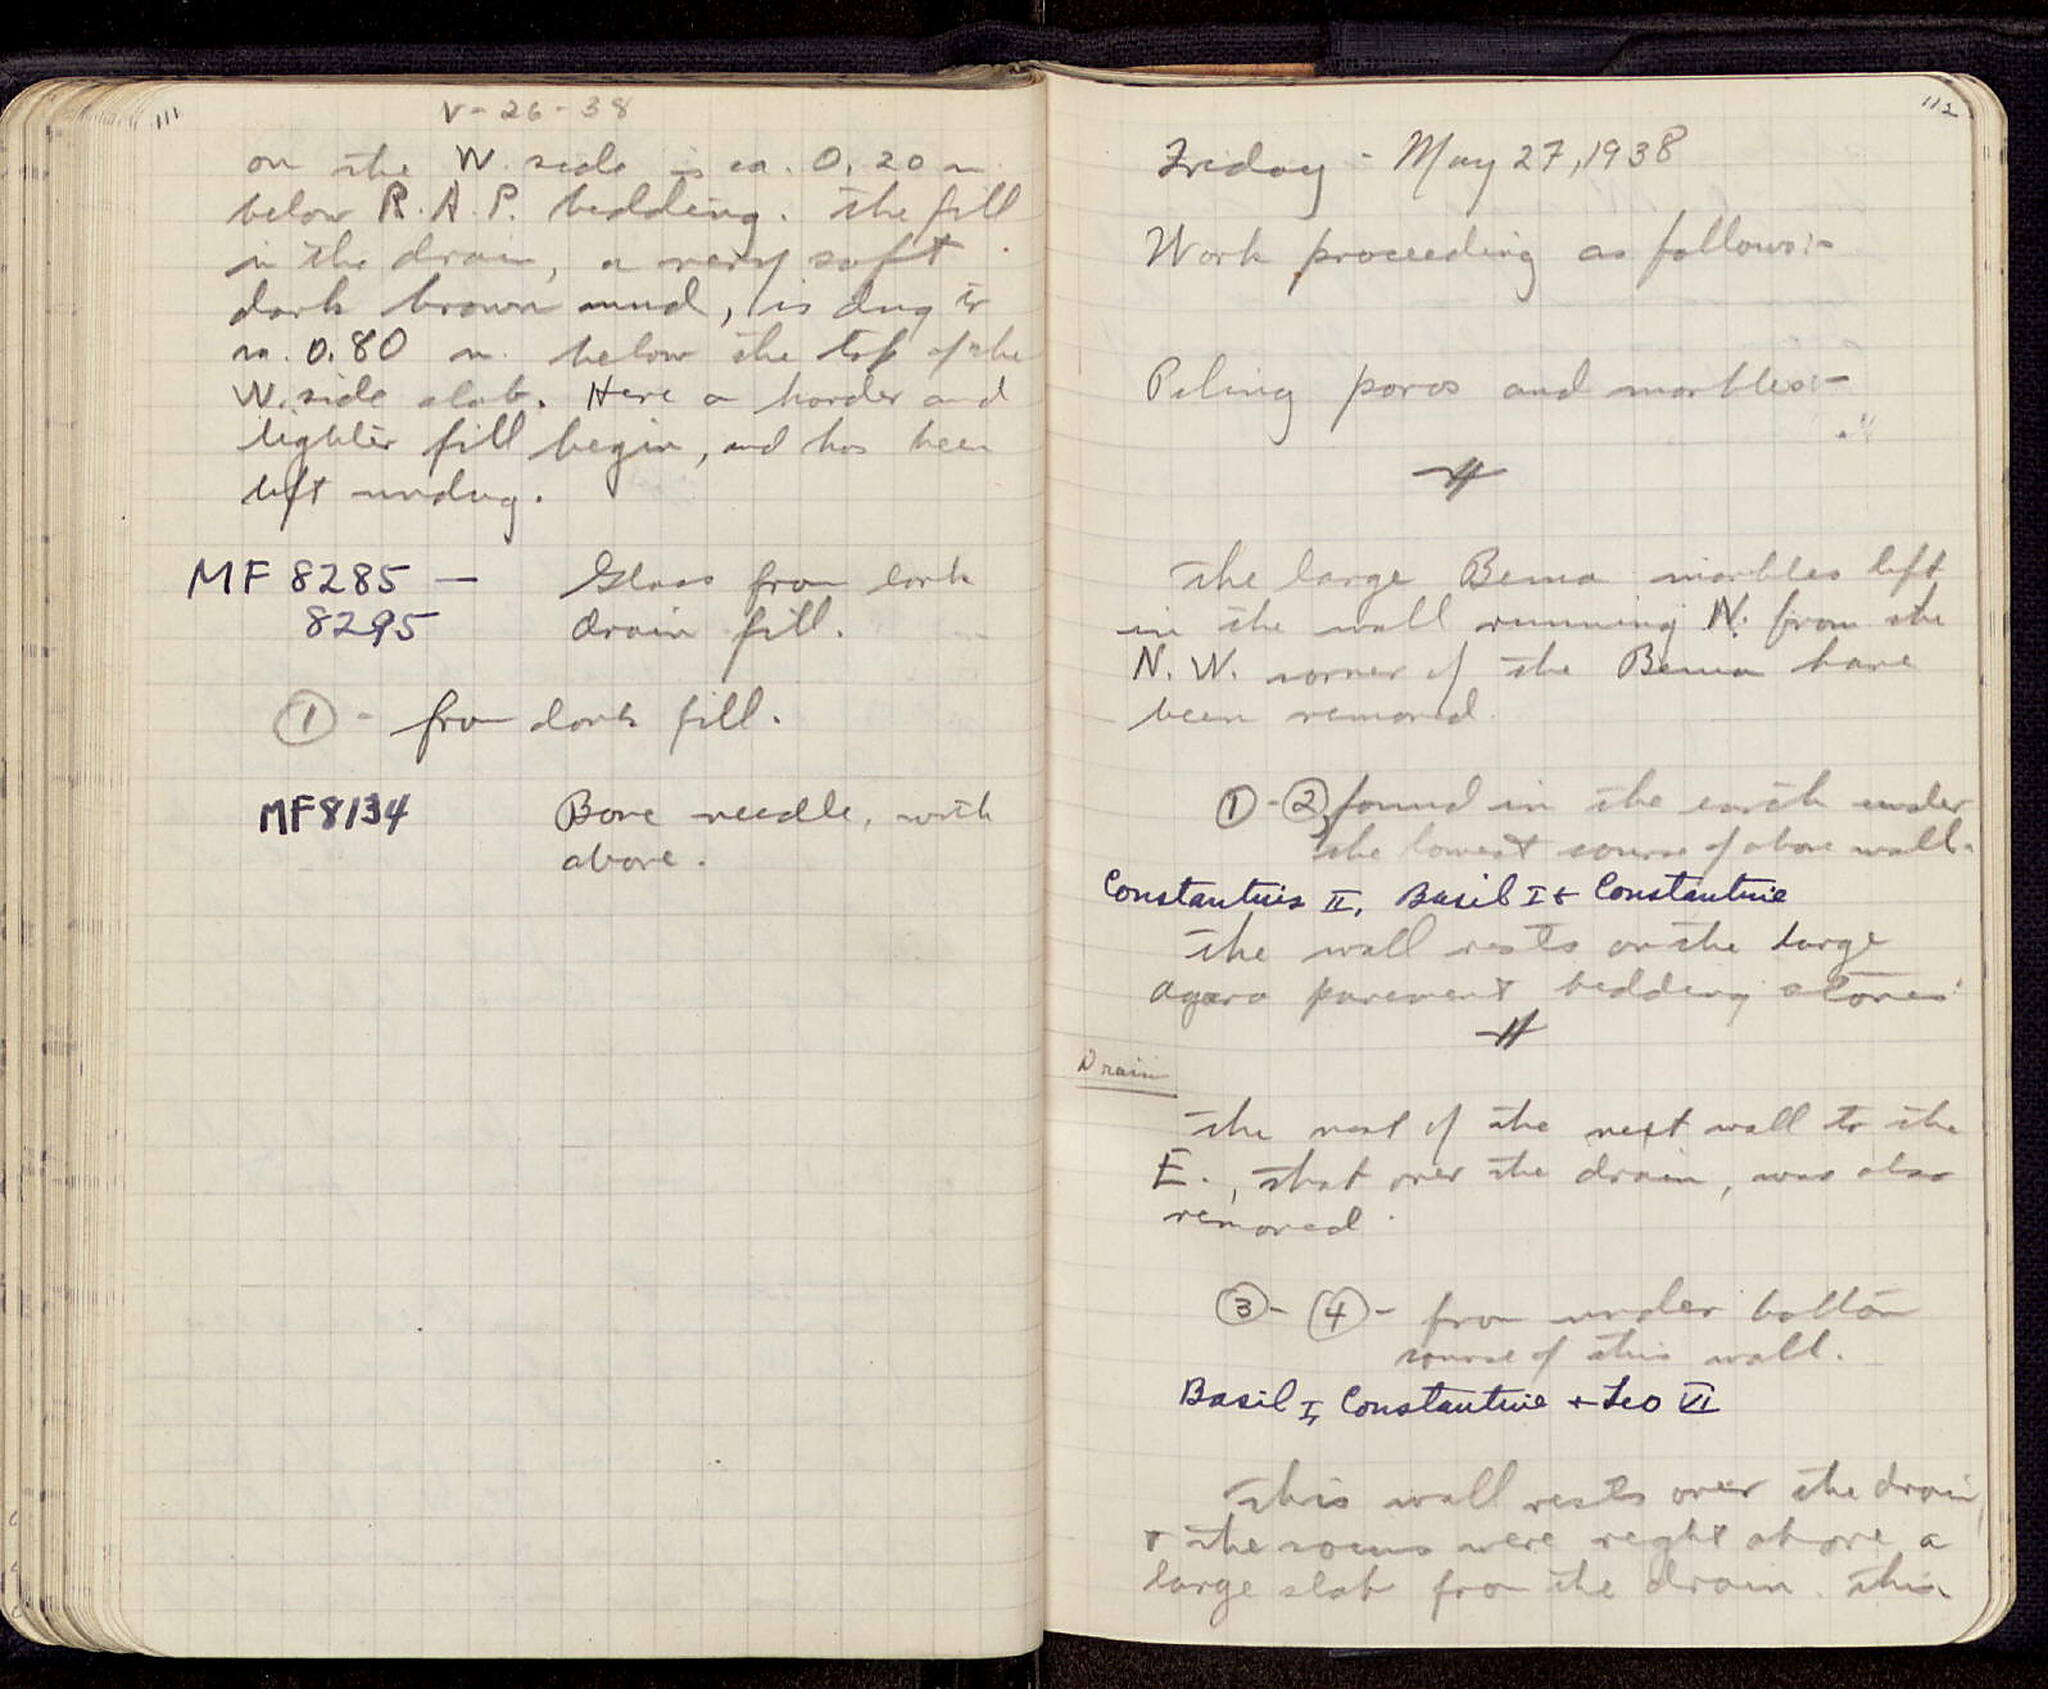 111
V-26-38
on the W. side is ca. 0.20 m
below R.A.P. bedding. The fill
in the drain, a very soft
dark brown mud, is dug to
ca. 0.80 m. below the top of the
W. side slab. Here a harder and
lighter fill begin, and has been
left undug.
MF 8285 — Glass from dark
8295 drain fill.
① - from dark fill.
MF8134 Bone needle, with
above.
112
Friday - May 27, 1938
Work proceeding as follows:-
Piling poros and marbles:-
The large Bema marbles left
in the wall running N. from the
N.W. corner of the Bema have
been removed.
① - ② found in the earth under
the lowest course of above wall.
Constantius II, Basil I + Constantine
The wall rests on the large
agora pavement bedding stones.
Drain
The rest of the next wall to the
E., that over the drain, was also
removed.
③ - ④ - from under bottom
course of this wall.
Basil I, Constantine + Leo VI
This wall rests over the drain,
+ the coins were right above a
large slab from the drain. This